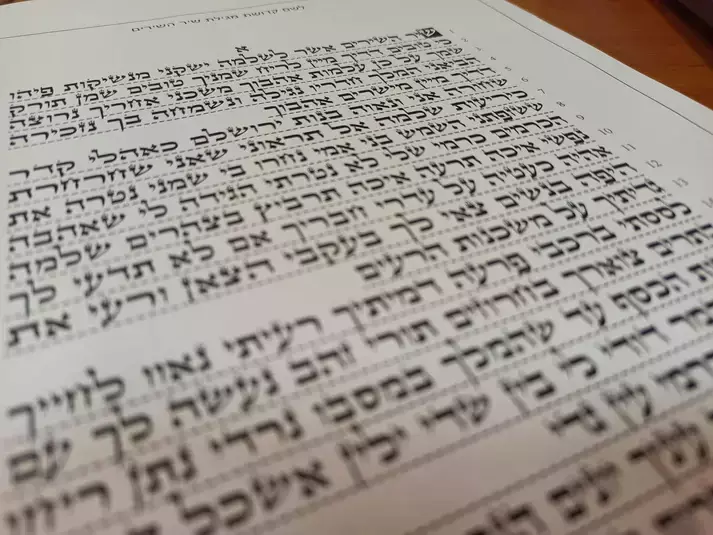 לשם קדושת מגילת שיר השירים
א
1 שיר השירים אשר לשלמה ישקני מנשיקות פיהו
2 כי טובים דדיך מיין לריח שמניך טובים שמן תורק
3 שמך על כן עלמות אהבוך משכני אחריך נרוצה
4 הביאני המלך חדריו נגילה ונשמחה בך נזכירה
5 דדיך מיין מישרים אהבוך
6 שחורה אני ונאוה בנות ירושלם כאהלי קדר
7 כיריעות שלמה אל תראוני שאני שחרחרת
8 ששזפתני השמש בני אמי נחרו בי שמני נטרה את
9 הכרמים כרמי שלי לא נטרתי הגידה לי שאהבה
10 נפשי איכה תרעה איכה תרביץ בצהרים שלמה
11 אהיה כעטיה על עדרי חבריך אם לא תדעי לך
12 היפה בנשים צאי לך בעקבי הצאן ורעי את
13 גדיתיך על משכנות הרעים
14 לססתי ברכבי פרעה דמיתיך רעיתי נאוו לחייך
צוארך בחרוזים תורי זהב נעשה לך עם
הכסף עד שהמלך במסבו נרדי נתן ריחו
דודי לי בין שדי ילין אשכל
עין גדי